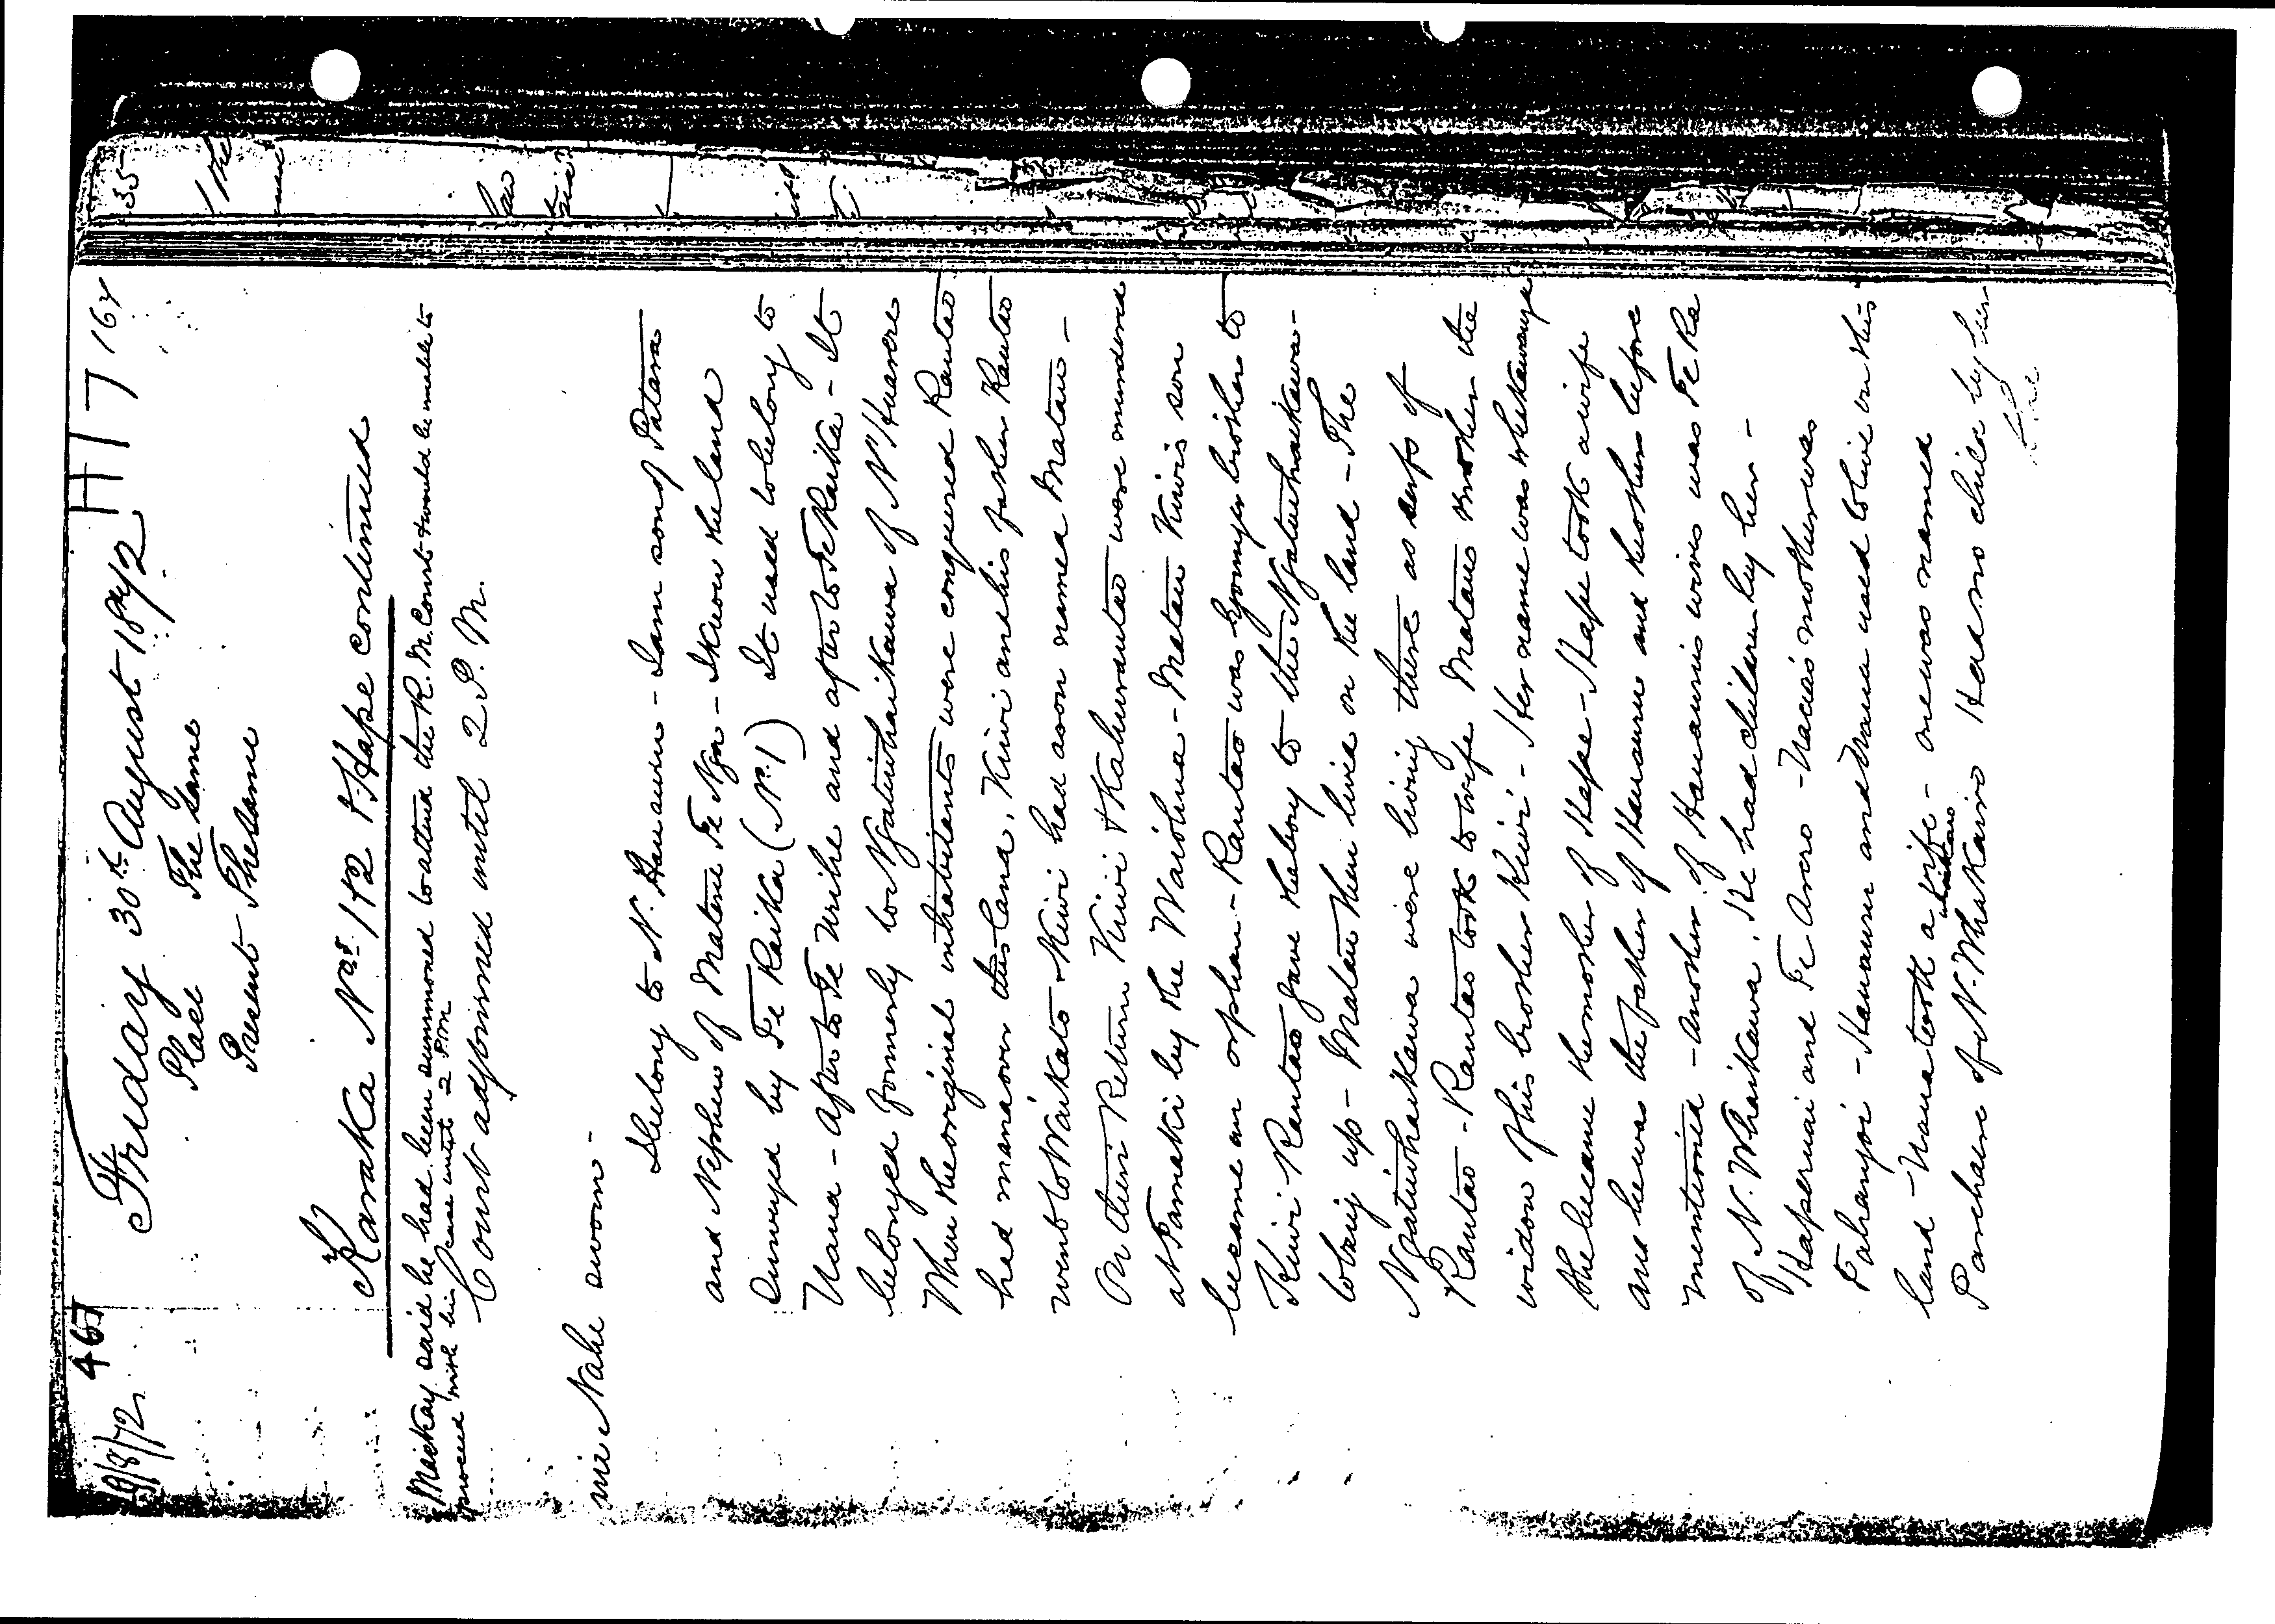 467
H 7 167
Friday 30th August 1872
Place The Same
Present The Same
Karaka Nos. 1 & 2 & Hape continued
Mackay said he had been summoned to attend the R. M. Court & would be unable to
proceed with his case until 2 P.M.
Court adjourned until 2 P. M.
Nahe sworn -
I belong to N. Hauauru - I am son of Patara
and Nephew of Matene Te Nga - I know the land
surveyed by Te Raika (No. 1) It used to belong to
Uana - after to Te Urihe and after to Te Raika - It
belonged formerly to Ngatiwhaikawa of N'Huarere
When the original inhabitants were conquered Rautao
had mana over this land, Kiwi and his father Rautao
went to Waikato - Kiwi had a son named Matau -
On their Return Kiwi & Kahurautao were murdered
at Tamaki by the Waiohua - Matau Kiwi's son
became an orphan - Rautao was younger brother to
Kiwi Rautao gave the boy to the Ngatiwhaikawa -
to bring up - Matau then lived on the land - The
Ngatiwhaikawa were living there as serfs of
Rautao - Rautao took to wife Mataus mother the
widow of his brother Kiwi - Her name was Whakawaya
She became the mother of Hape - Hape took a wife
and he was the father of Hauauru and brothers before
mentioned - Another of Hauauru's wives was Te Ra
of N. Whaikawa. He had children by her -
Haperuai and Te Arero - mother was
Pahangoi - Hauauru and Uana used to live on this
land - Uana took a wife - one was named
Parehaere of N. Whakairo Had no child by her